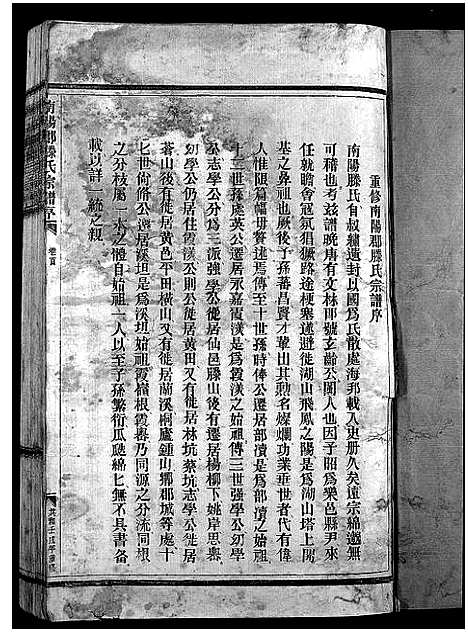 重修南陽郡滕氏宗譜序
南陽滕氏自叔繡遺封以國爲氏散處海邦載入史册久矣遠宗綿邈無
可稽也考茲譜晚唐有文林郎號玄齡公閩人也因子昭爲樂邑縣尹來
任就瞻會寇氛猖獗路途梗塞遂避徙湖山飛鳳之陽是爲湖山塔上開
基之鼻祖也厥後子孫蕃昌賢才輩出其勲名燦爛功業垂世者代有偉
人惟限篇幅毋贅述焉傳至十世孫時俸公遷居部瀆是爲部瀆之始祖
十三世孫處英公遷居永嘉霞渼是爲霞渼之始祖傳三世强學公幼學
公志學公分爲三派强學公徙居仙邑滕山後有遷居楊柳下姚岸思轡
幼學公仍居住霞渼公則公徙居黄田又有徙居林坑蔡坑志學公徙居
蒼山後有徙居黄邑平田橫山又有徙居蘭溪桐廬鍾山鄉郡城等處十
七世尚脩公遷居溪坦是爲溪坦始祖霞嶺根霞嶴乃同源之分流同根
之分枝屬一本之體自始祖一人以至子孫繁衍瓜瓞綿七無不具書備
載以詳一統之親
南陽郡滕氏宗譜序
卷首